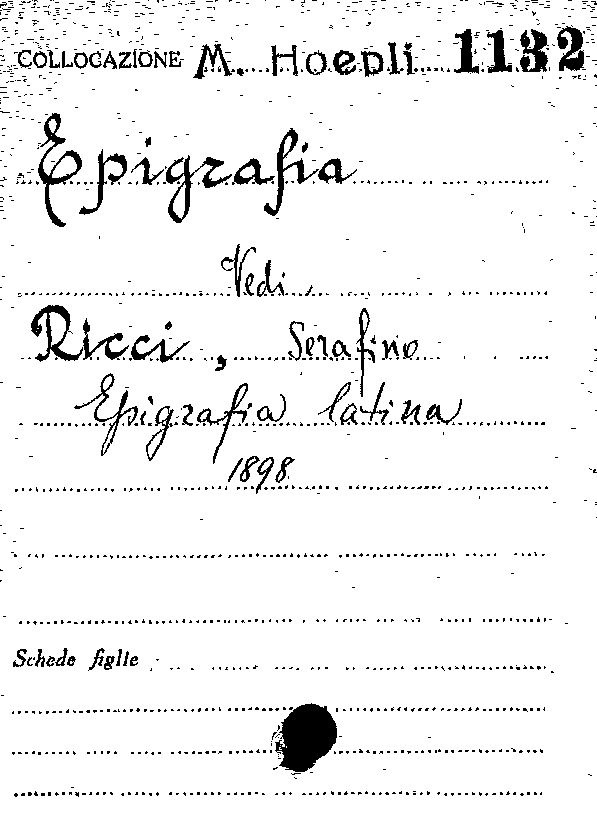 COLLOCAZIONE M. Hoepli 1132
Epigrafia
Vedi
Ricci, Serafino
Epigrafia latina
1898
Schede figlie